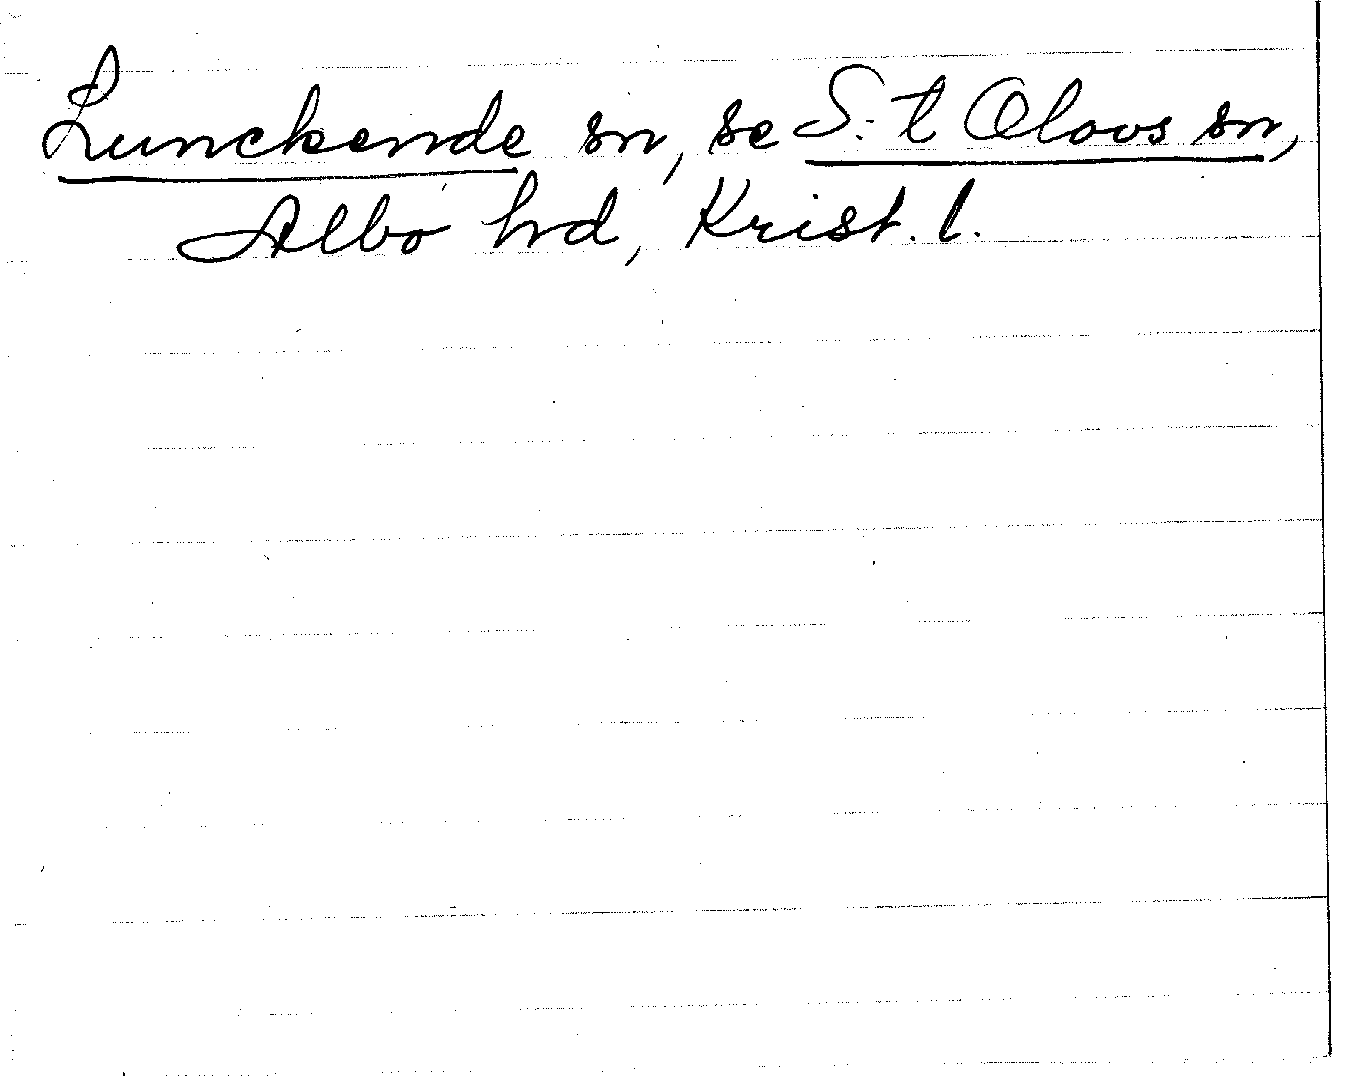 Lunckende sn, se S:t Olovs sn,
Albo hrd, Krist. l.